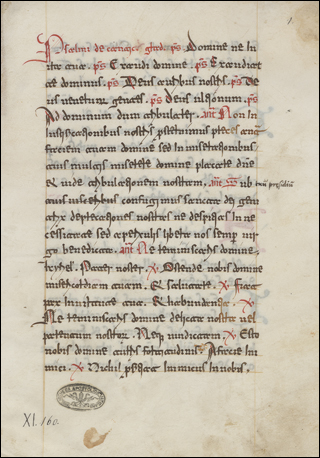 1
Psalmi de
Domine ne in
ira tua. ps Exaudi domine. ps Exaudiat
te dominus. ps Deus auribus nostris. ps De
us venerunt gentes. ps Deus ultionum. ps
Ad dominum dum tribularer. ant Non in
nostris
faciem tuam domine sed in miserationibus
tuis multis miserere domine parcere dne
& vide tribulationem nostram. ant Sub
tuum presidium
confugimus sancta dei geni
trix deprecationes nostras ne despicias in ne
cessitate sed a periculis libera nos semper vir
go benedicta. ant Ne reminiscaris domine
Pater noster. Ostende nobis domine
misericordiam tuam. Et salutare. Fiat
pax in virtute tua. Et habundantia.
Ne reminiscaris domine delicta nostra vel
parentum nostrorum. Neque vindictam. Esto
nobis domine turris fortitudinis. A facie ini
mici. Nichil proficiat inimicus in nobis.
XI. 160.